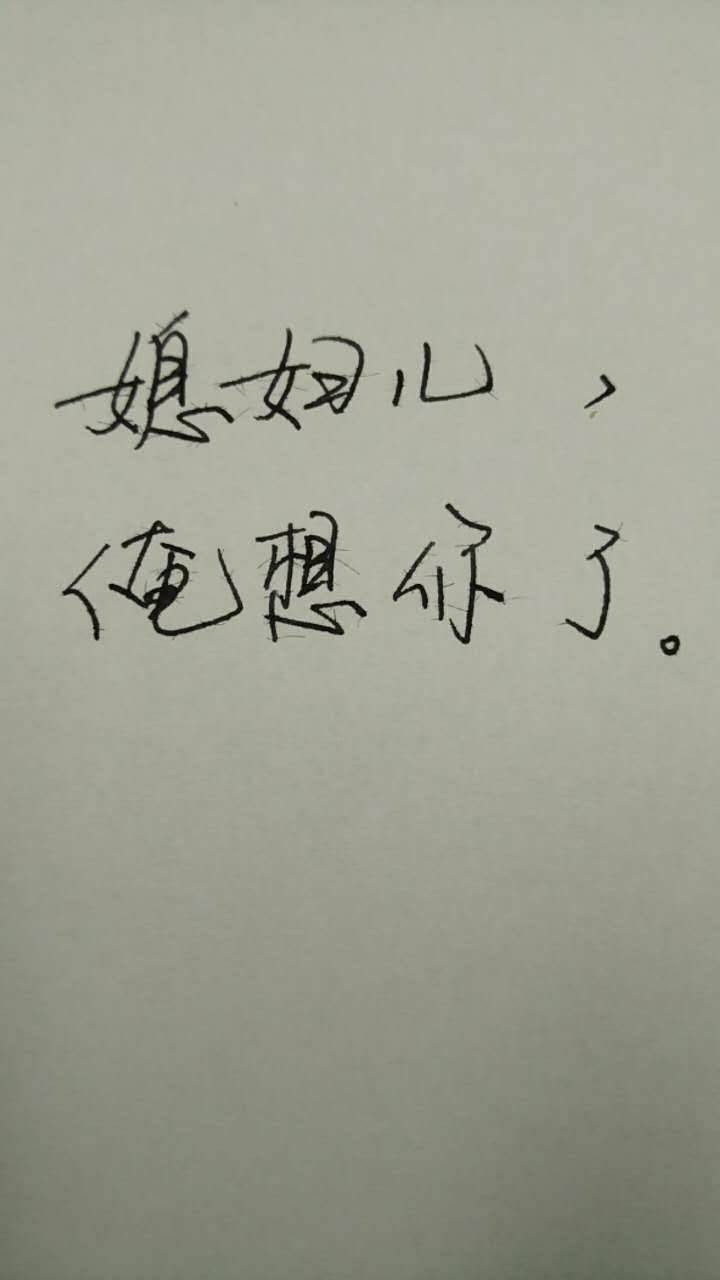 媳妇儿，
俺想你了。